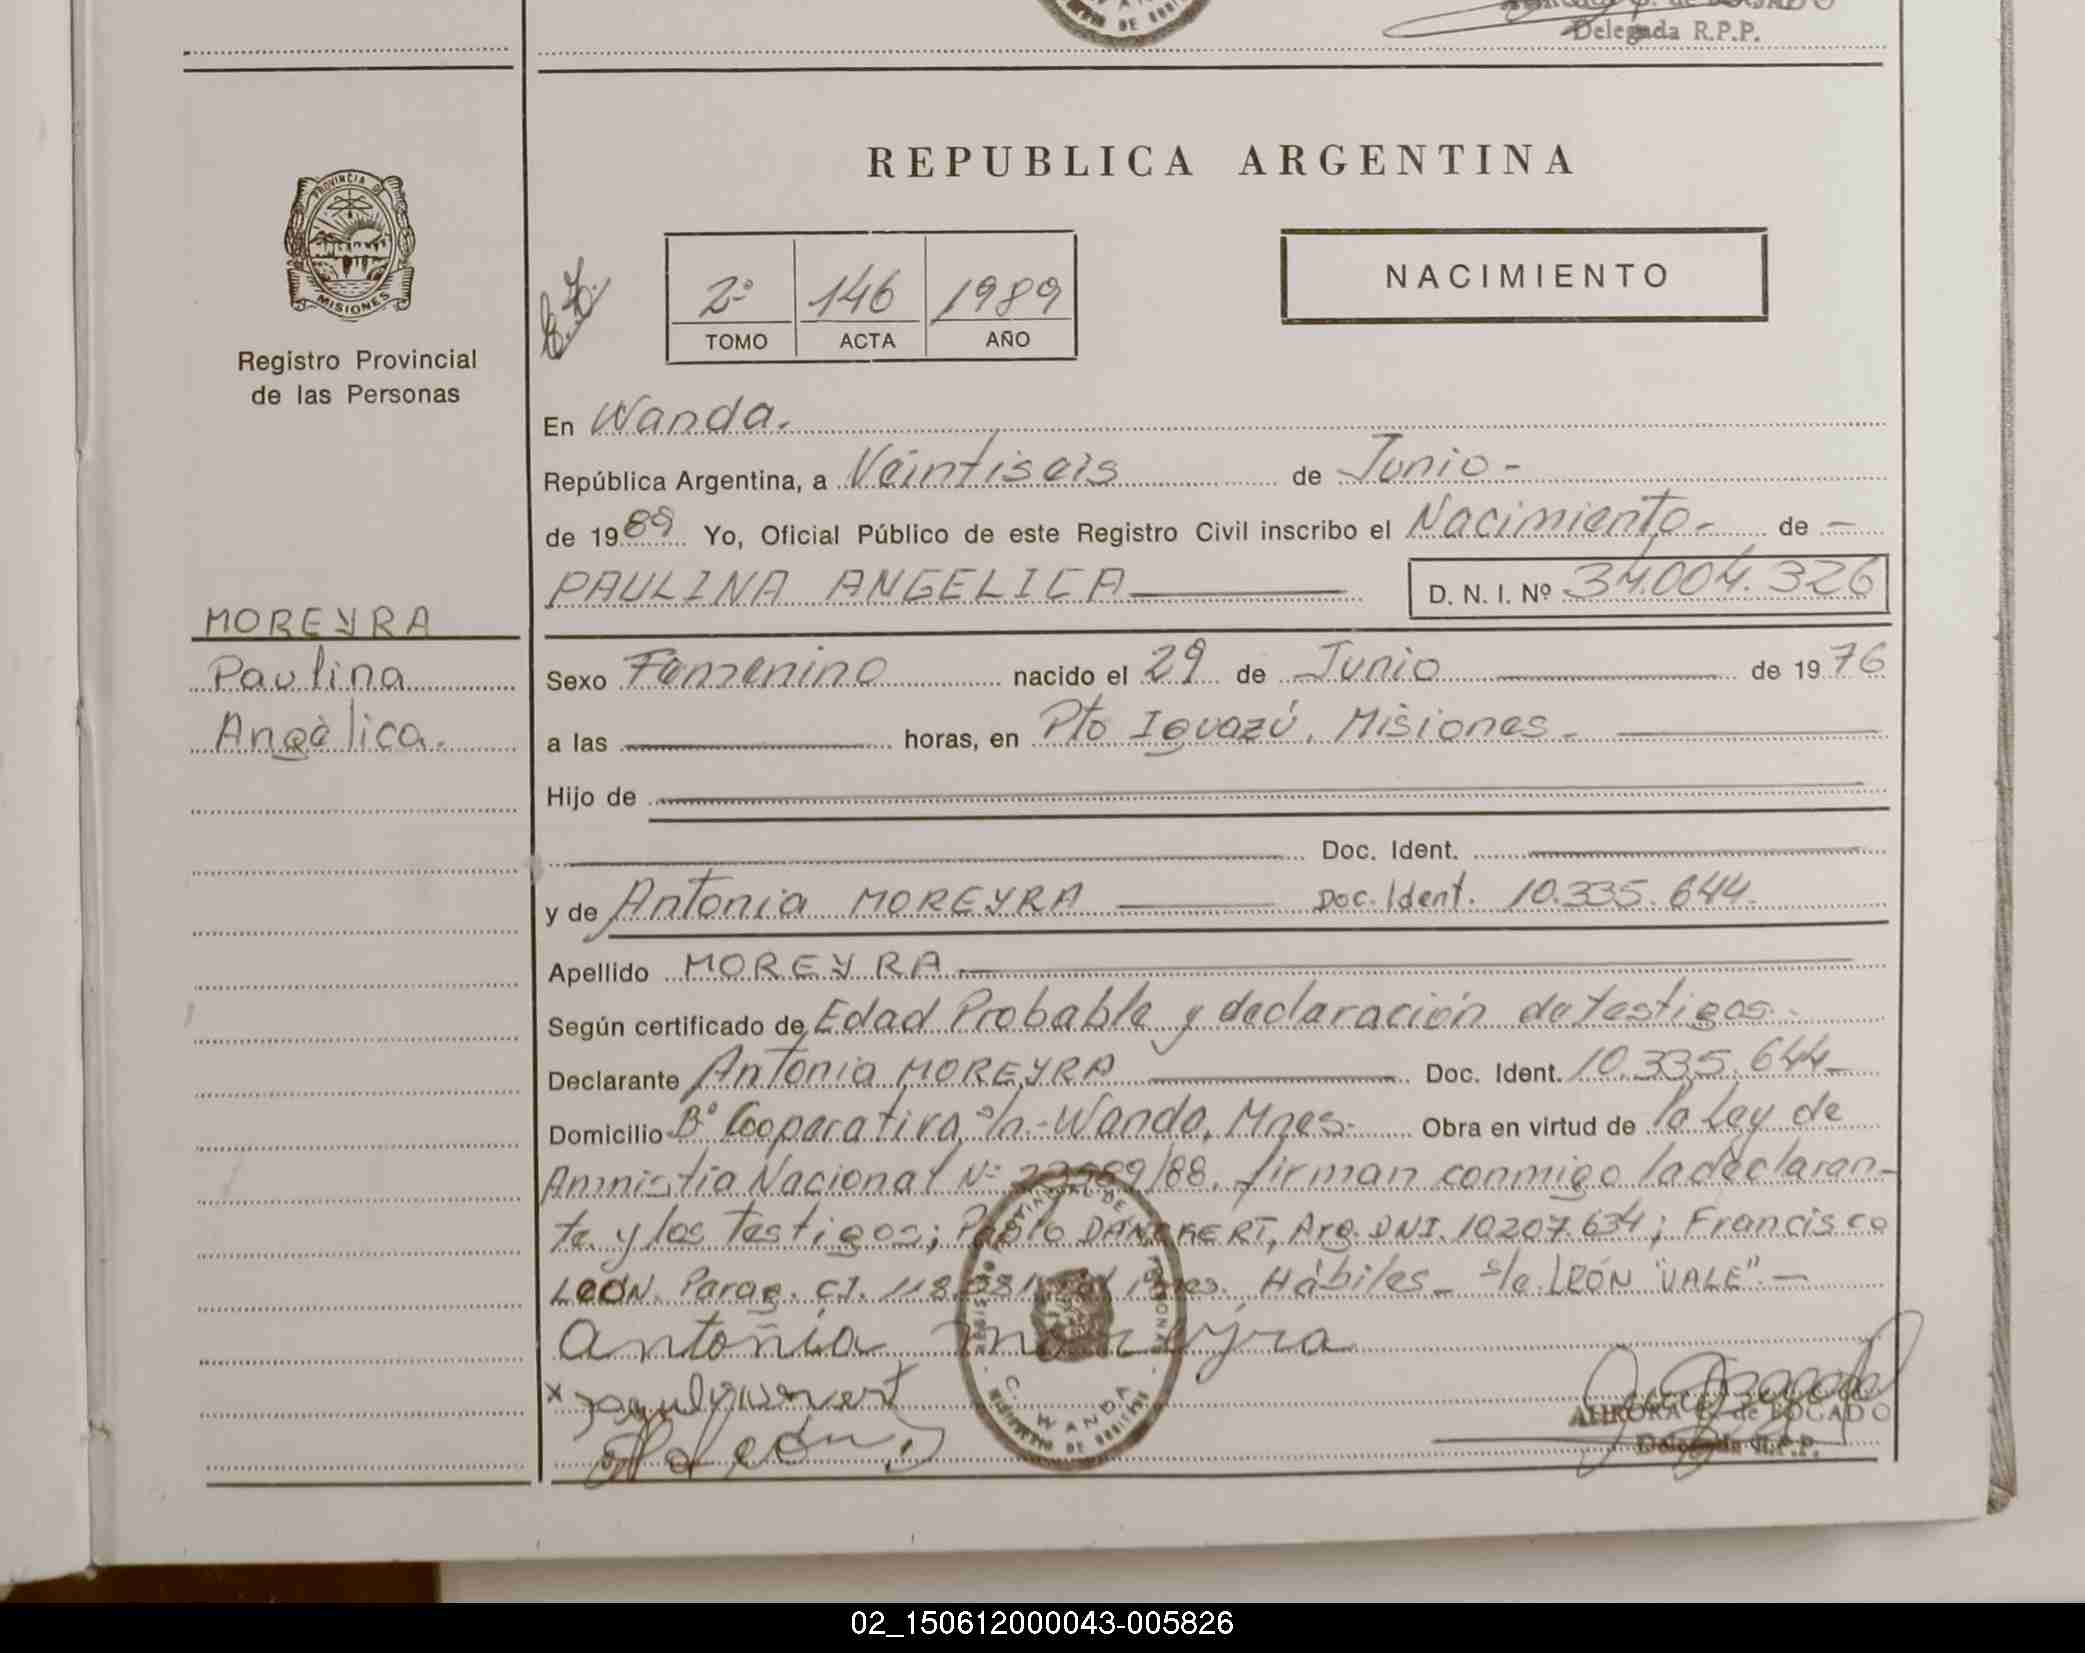 Delegada R.P.P.
REPUBLICA ARGENTINA
PROVINCIA DE
MISIONES
Registro Provincial
de las Personas
2º 146 1989
TOMO ACTA AÑO
NACIMIENTO
En Wanda.
República Argentina, a Veintiseis de Junio-
de 1989 Yo, Oficial Público de este Registro Civil inscribo el Nacimiento- de -
PAULINA ANGELICA D. N. I. Nº 34.004.326
MOREYRA
Paulina
Angélica.
Sexo Femenino nacido el 29 de Junio de 1976
a las horas, en Pto Iguazú. Misiones.-
Hijo de
Doc. Ident.
y de Antonia MOREYRA Doc. Ident. 10.335.644.
Apellido MOREYRA
Según certificado de Edad Probable y declaración de testigos.-
Declarante Antonia MOREYRA Doc. Ident. 10.335.644-
Domicilio Bº Cooperativa s/n.-Wanda, Mnes.- Obra en virtud de la Ley de
Amnistía Nacional Nº /88. firman conmigo la declaran-
te y los testigos; Pablo DANCKERT, Arg. DNI. 10207.634; Francisco
LEÓN. Parag. CI. Mnes. Hábiles- s/e LEÓN "VALE".-
Antoñia Moreyra
WANDA
AURORA de BOGADO
Delegada R.P.P.
02_150612000043-005826